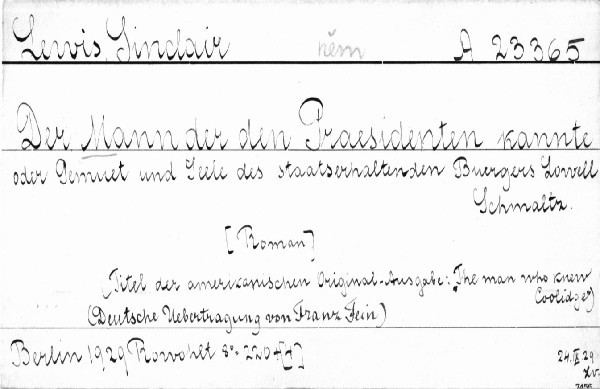 Lewis, Sinclair něm A 23365
Der Mann der den Praesidenten kannte
oder Gemuet und Seele des staatserhaltenden Buergers Lowell
Schmaltz.
[Roman]
(Titel der amerikanischen Original-Ausgabe: "The man who knew
Coolidge)
(Deutsche Uebertragung von Franz Fein)
Berlin 1929 Rowohlt 8°- 220+[4]
24.IX 29.